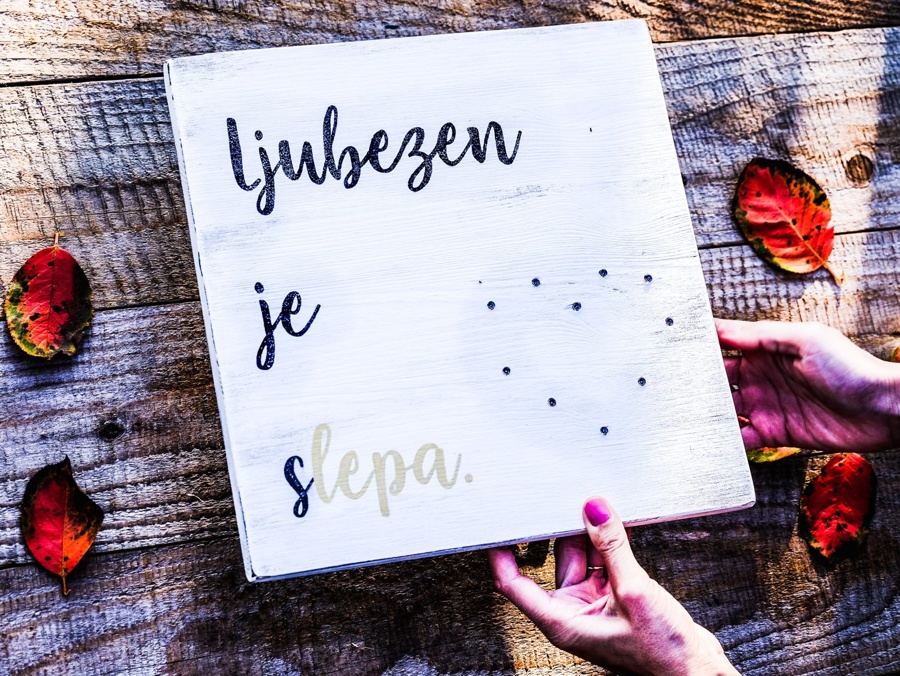 ljubezen
je
slepa.